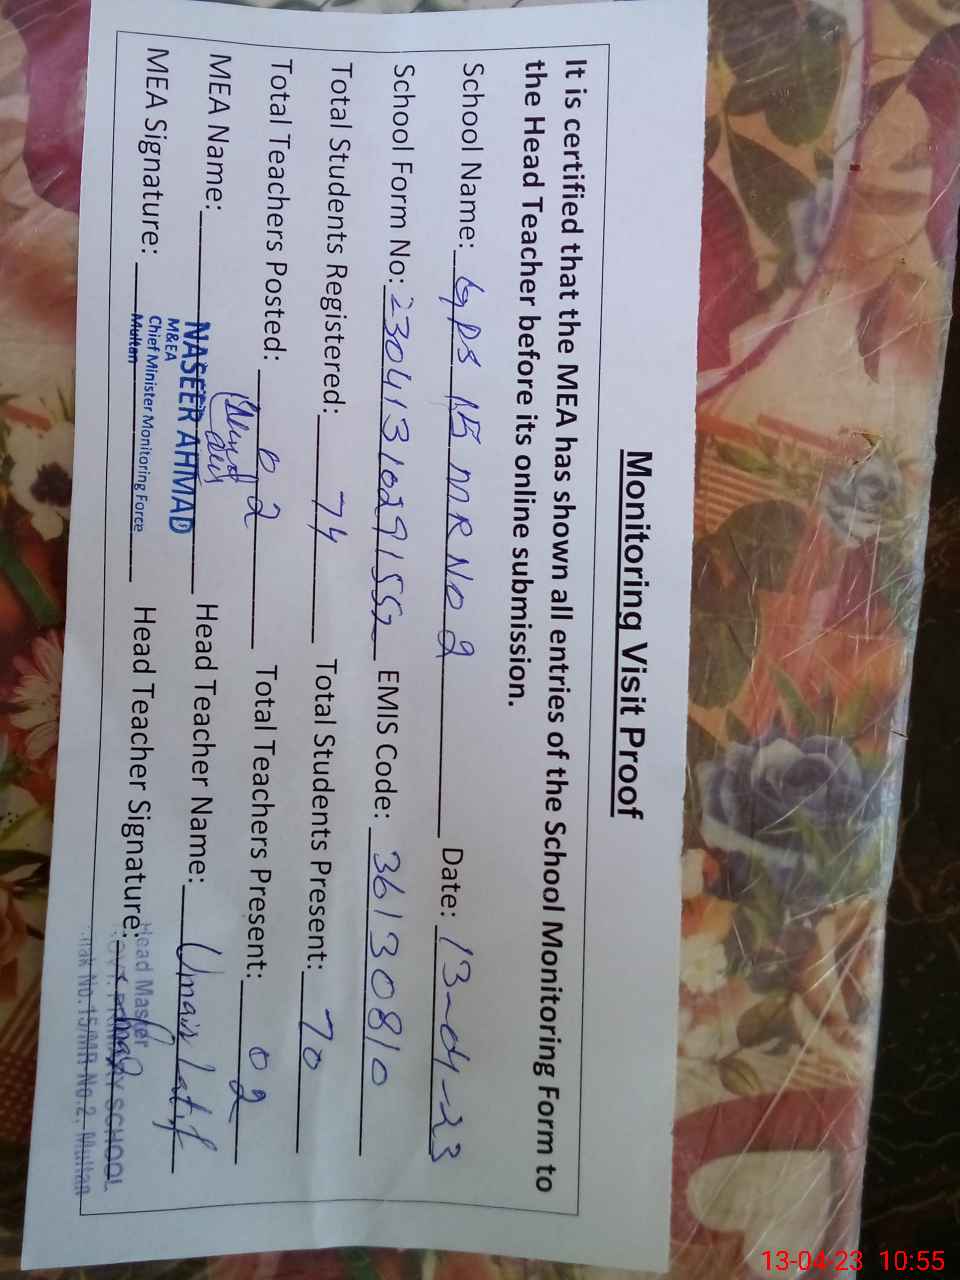 Monitoring Visit Proof
It is certified that the MEA has shown all entries of the School Monitoring Form to
the Head Teacher before its online submission.
School Name: GPS 15 MR No 2 Date: 13-04-23
School Form No: 230413102915552 EMIS Code: 36130810
Total Students Registered: 74 Total Students Present: 70
Total Teachers Posted: 02 Total Teachers Present: 02
MEA Name: NASEER AHMAD Head Teacher Name: Umair Latif
M&EA
Chief Minister Monitoring Force
Multan
MEA Signature: Head Teacher Signature:
Head Master
GOVT. PRIMARY SCHOOL
Chak No.15/MR No.2, Multan
13-04-23 10:55